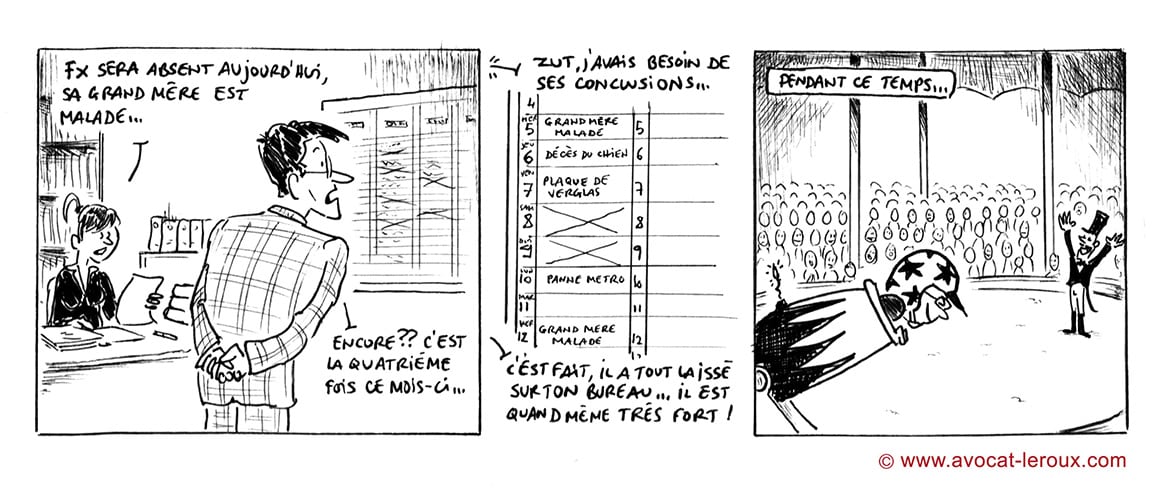 FX SERA ABSENT AUJOURD'HUI,
SA GRAND MÈRE EST
MALADE...
ENCORE?? C'EST
LA QUATRIÈME
FOIS CE MOIS-CI...
ZUT, J'AVAIS BESOIN DE
SES CONCLUSIONS...
4
MER 5 GRAND MÈRE 5
MALADE
JEU 6 DÉCÈS DU CHIEN 6
VEN 7 PLAQUE DE 7
VERGLAS
SAM 8 8
DIM 9 9
LUN 10 PANNE METRO 10
MAR 11 11
MER 12 GRAND MÈRE 12
MALADE
C'EST FAIT, IL A TOUT LAISSÉ
SUR TON BUREAU... IL EST
QUAND MÊME TRÈS FORT !
PENDANT CE TEMPS...
© www.avocat-leroux.com